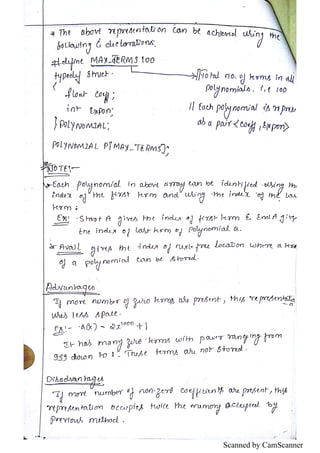 * The above representation can be achieved using the
following C declarations.
#define MAX_TERMS 100
typedef struct
{
float coeff;
int expon;
} POLYNOMIAL;
→ // Total no. of terms in all
polynomials. i.e 100
// Each polynomial is repres
as a pair <coeff, expon>
POLYNOMIAL P[MAX_TERMS];
NOTE:-
Each polynomial in above array can be identified using the
index of the first term and using the index of the las
term.
Ex:- Start A gives the index of first term & End A giv
the index of last term of polynomial a.
* Avail gives the index of next free location where a term
of a polynomial can be stored.
Advantages
If more number of zero terms are present, this representatio
n
uses less space.
Ex:- A(x) = 2x1000 + 1
It has many zero terms with power ranging from
999 down to 1. These terms are not stored.
Disadvantages
If more number of non-zero coefficients are present, this
representation occupies twice the memory occupied by
previous method.
Scanned by CamScanner